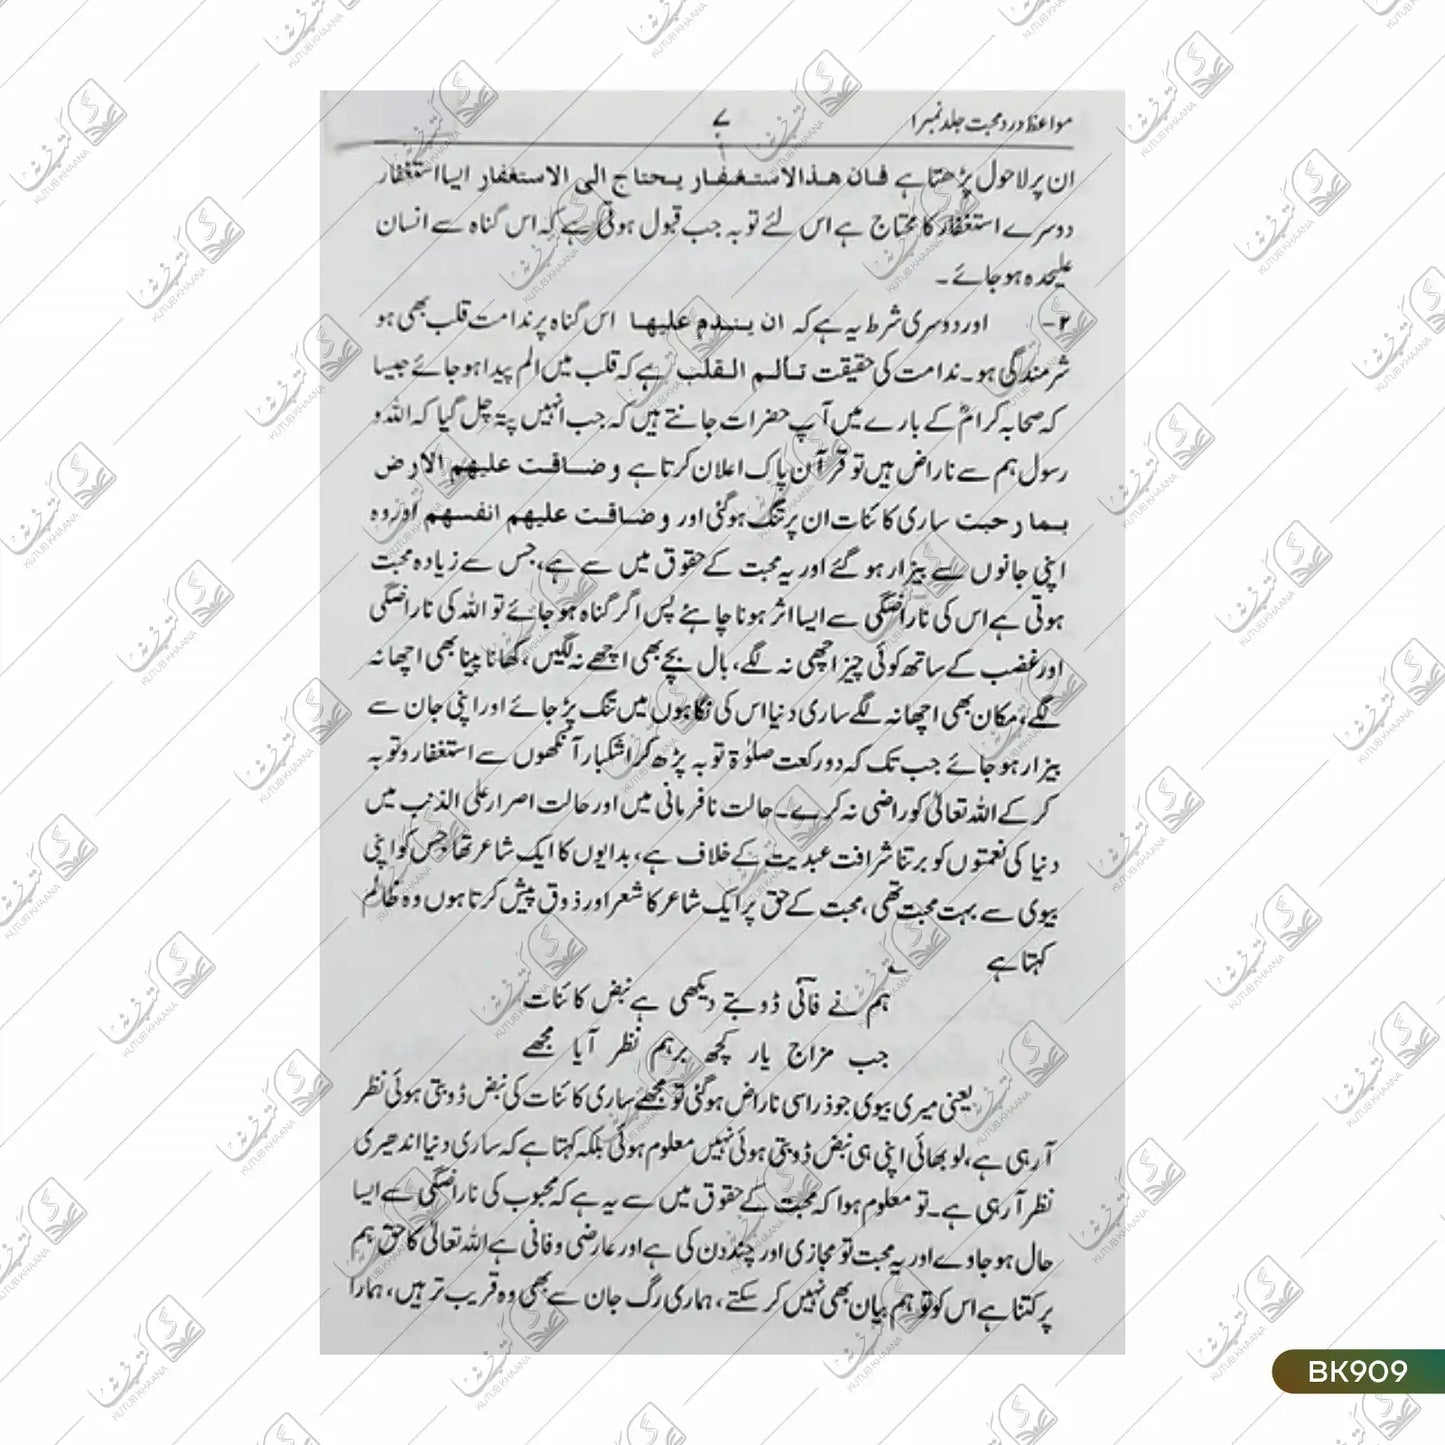 مواعظ درد محبت جلد نمبر ۱
۷
ان پر لاحول پڑھتا ہے فان هذا الاستغفار يحتاج الى الاستغفار ایسا استغفار
دوسرے استغفار کا محتاج ہے اس لئے توبہ جب قبول ہوتی ہے کہ اس گناہ سے انسان
علیحدہ ہو جائے ۔
۲- اور دوسری شرط یہ ہے کہ ان يندم عليها اس گناہ پر ندامت قلب بھی ہو
شرمندگی ہو۔ ندامت کی حقیقت تألم القلب ہے کہ قلب میں الم پیدا ہو جائے جیسا
کہ صحابہ کرامؓ کے بارے میں آپ حضرات جانتے ہیں کہ جب انہیں پتہ چل گیا کہ اللہ و
رسول ہم سے ناراض ہیں تو قرآن پاک اعلان کرتا ہے وضاقت عليهم الارض
بما رحبت ساری کائنات ان پر تنگ ہو گئی اور وضاقت عليهم انفسهم اور وہ
اپنی جانوں سے بیزار ہو گئے اور یہ محبت کے حقوق میں سے ہے، جس سے زیادہ محبت
ہوتی ہے اس کی ناراضگی سے ایسا اثر ہونا چاہئے پس اگر گناہ ہو جائے تو اللہ کی ناراضگی
اور غضب کے ساتھ کوئی چیز اچھی نہ لگے، بال بچے بھی اچھے نہ لگیں، کھانا پینا بھی اچھا نہ
لگے، مکان بھی اچھا نہ لگے ساری دنیا اس کی نگاہوں میں تنگ پڑ جائے اور اپنی جان سے
بیزار ہو جائے جب تک کہ دو رکعت صلوٰۃ توبہ پڑھ کر اشکبار آنکھوں سے استغفار و توبہ
کر کے اللہ تعالیٰ کو راضی نہ کرے۔ حالت نافرمانی میں اور حالت اصرار علی الذنب میں
دنیا کی نعمتوں کو برتنا شرافت عبدیت کے خلاف ہے، بدایوں کا ایک شاعر تھا جس کو اپنی
بیوی سے بہت محبت تھی، محبت کے حق پر ایک شاعر کا شعر اور ذوق پیش کرتا ہوں وہ ظالم
کہتا ہے
ہم نے فانی ڈوبتے دیکھی ہے نبض کائنات
جب مزاج یار کچھ برہم نظر آیا مجھے
یعنی میری بیوی جو ذرا سی ناراض ہو گئی تو مجھے ساری کائنات کی نبض ڈوبتی ہوئی نظر
آ رہی ہے، لو بھائی اپنی ہی نبض ڈوبتی ہوئی نہیں معلوم ہوئی بلکہ کہتا ہے کہ ساری دنیا اندھیری
نظر آ رہی ہے۔ تو معلوم ہوا کہ محبت کے حقوق میں سے یہ ہے کہ محبوب کی ناراضگی سے ایسا
حال ہو جاوے اور یہ محبت تو مجازی اور چند دن کی ہے اور عارضی و فانی ہے اللہ تعالیٰ کا حق ہم
پر کتنا ہے اس کو تو ہم بیان بھی نہیں کر سکتے، ہماری رگ جان سے بھی وہ قریب تر ہیں، ہمارا
BK909